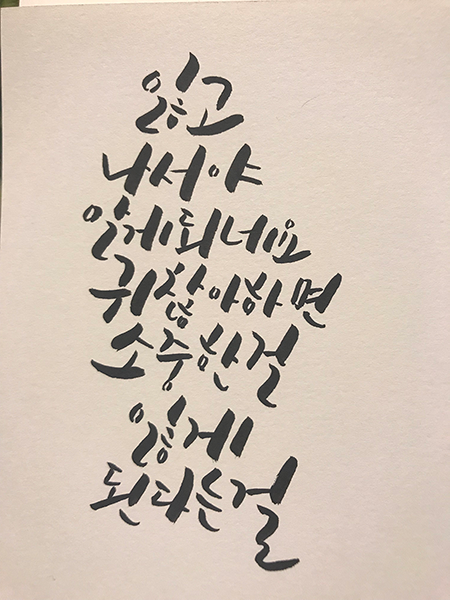 잃고
나서야
알게되네요
귀찮아하면
소중한걸
잃게
된다는걸